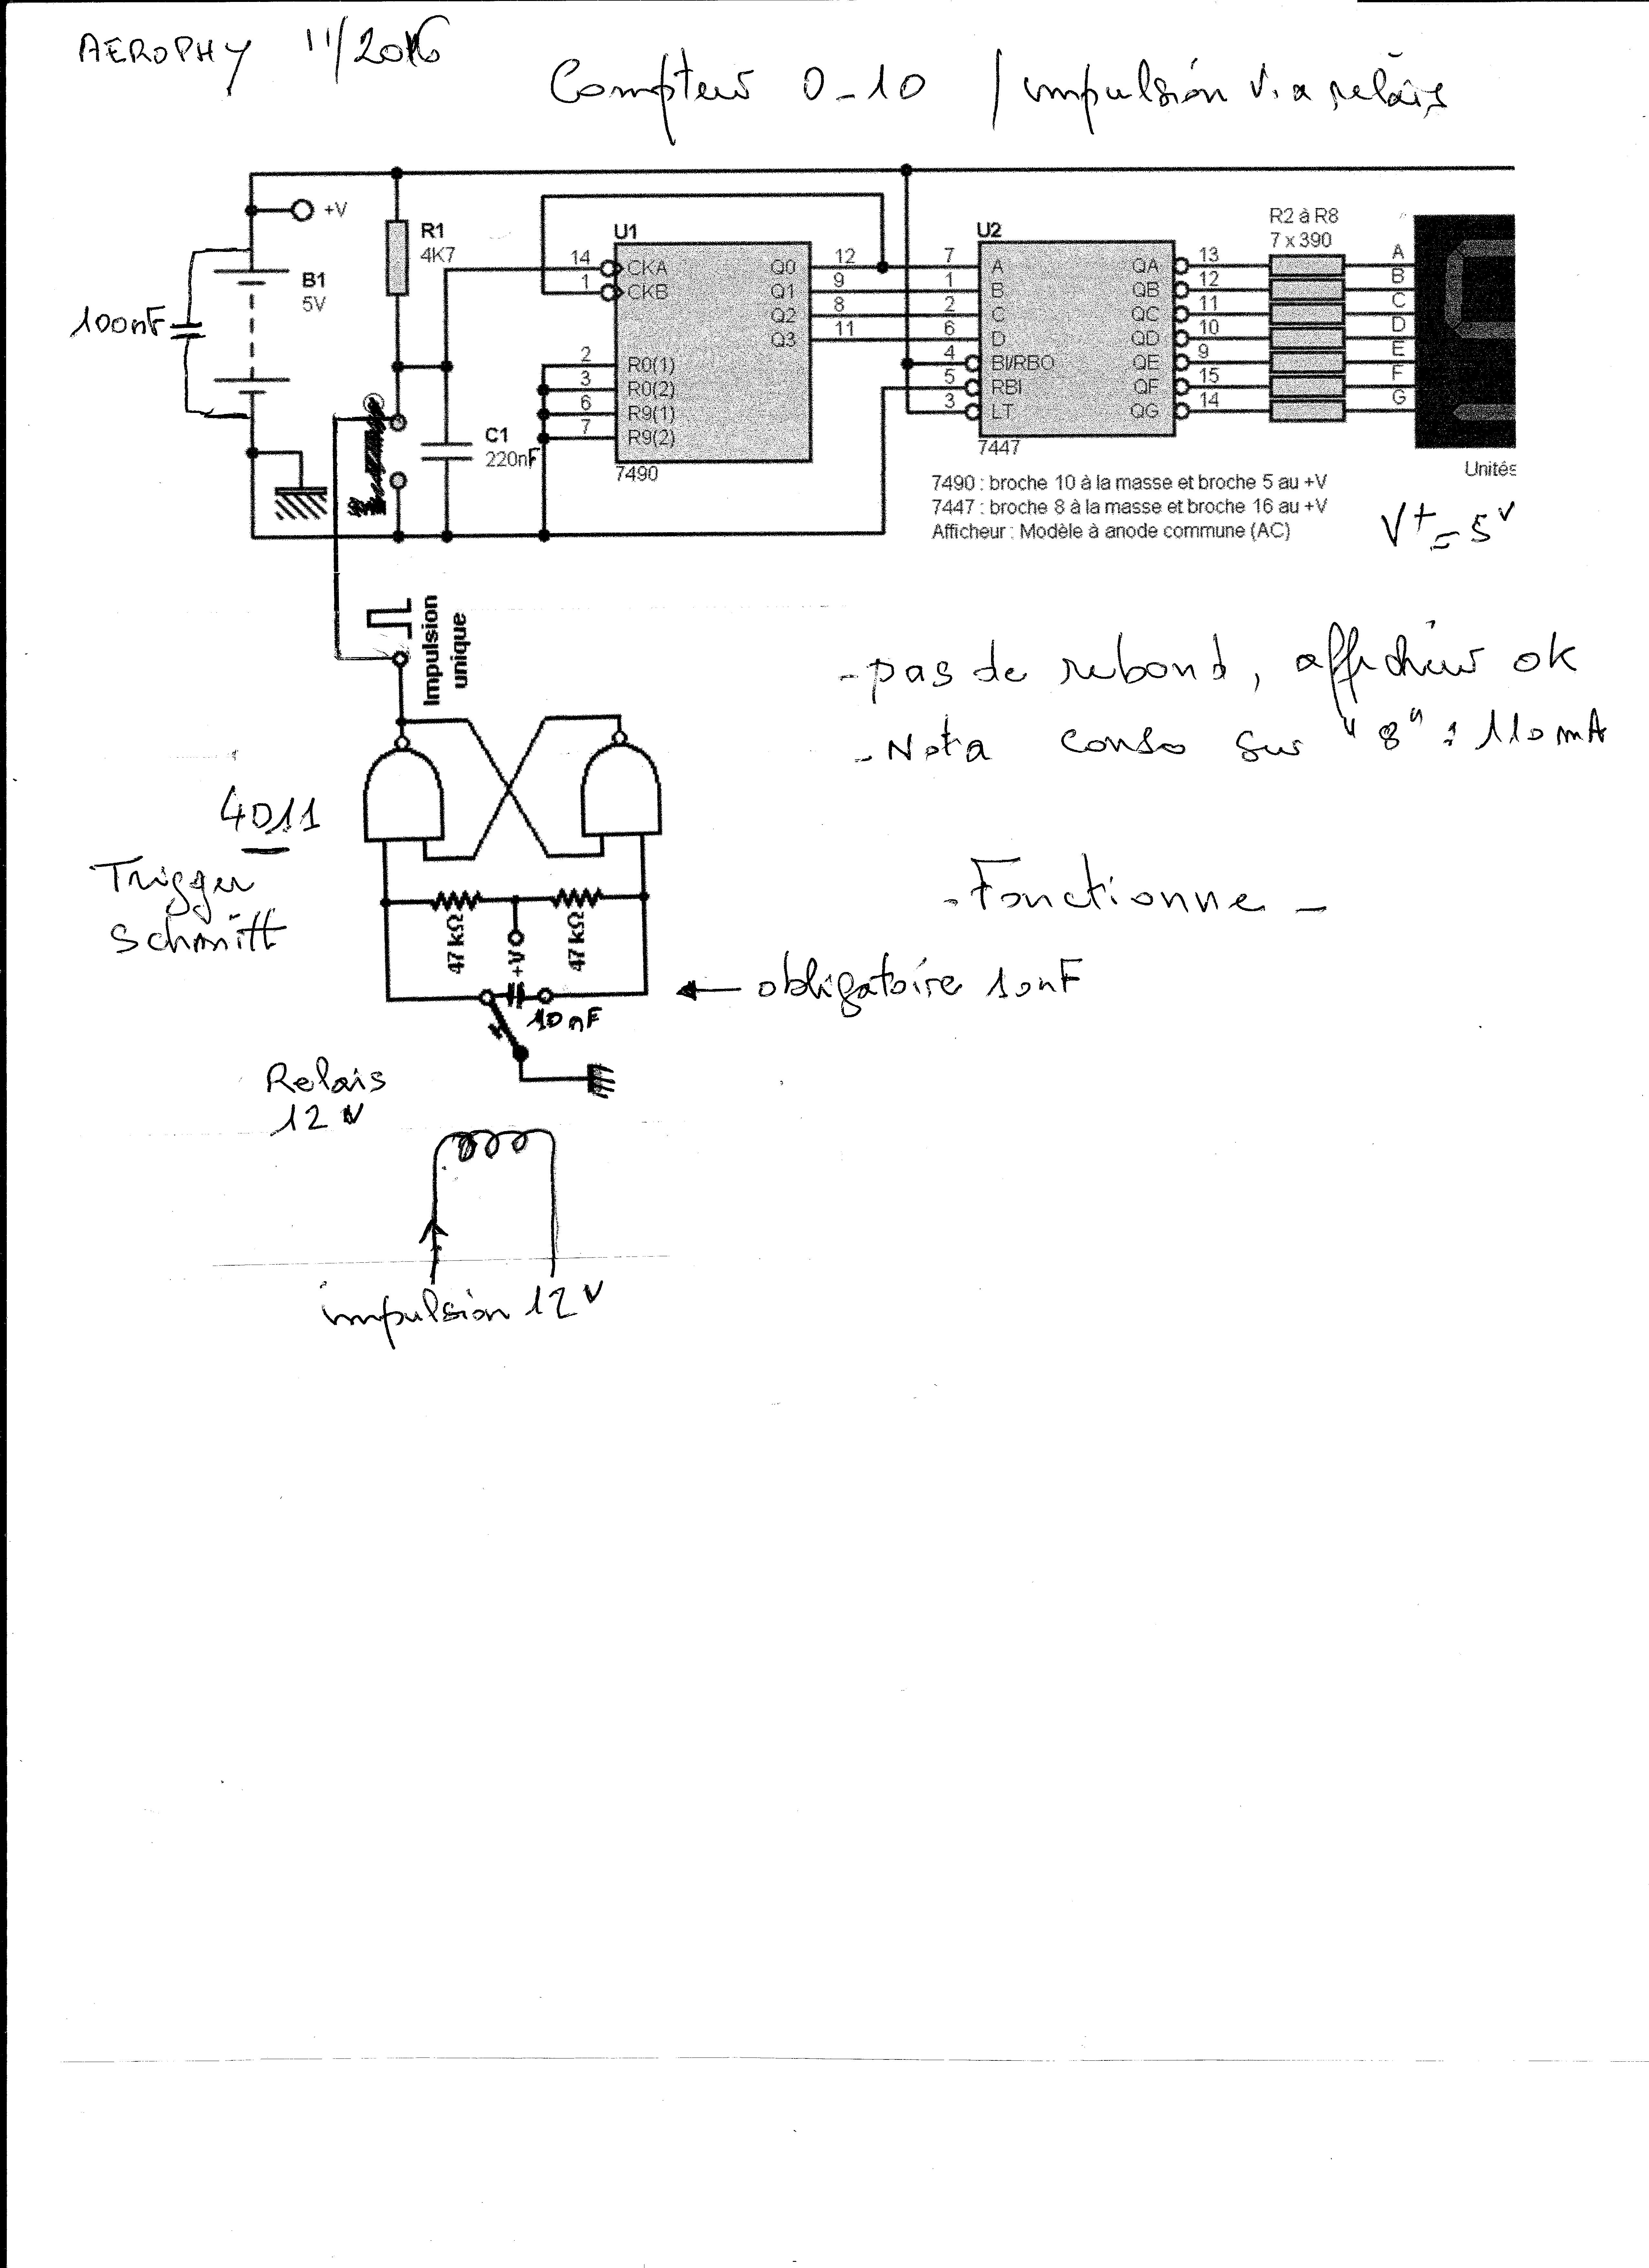 AEROPHY 11/2016
Compteur 0-10 / impulsion via relais
+V
R1
4K7
B1
5V
100nF
C1
220nF
U1
14 CKA Q0 12
1 CKB Q1 9
Q2 8
Q3 11
2 R0(1)
3 R0(2)
6 R9(1)
7 R9(2)
7490
U2
7 A QA 13
1 B QB 12
2 C QC 11
6 D QD 10
4 BI/RBO QE 9
5 RBI QF 15
3 LT QG 14
7447
R2 à R8
7 x 390
A
B
C
D
E
F
G
Unités
7490 : broche 10 à la masse et broche 5 au +V
7447 : broche 8 à la masse et broche 16 au +V
Afficheur : Modèle à anode commune (AC)
V+ = 5V
Impulsion
unique
- pas de rebond, afficheur ok
- Nota conso sur "8" : 110mA
4011
Trigger
Schmitt
- Fonctionne -
47 kΩ
+V
47 kΩ
10nF
← obligatoire 10nF
Relais
12V
impulsion 12V